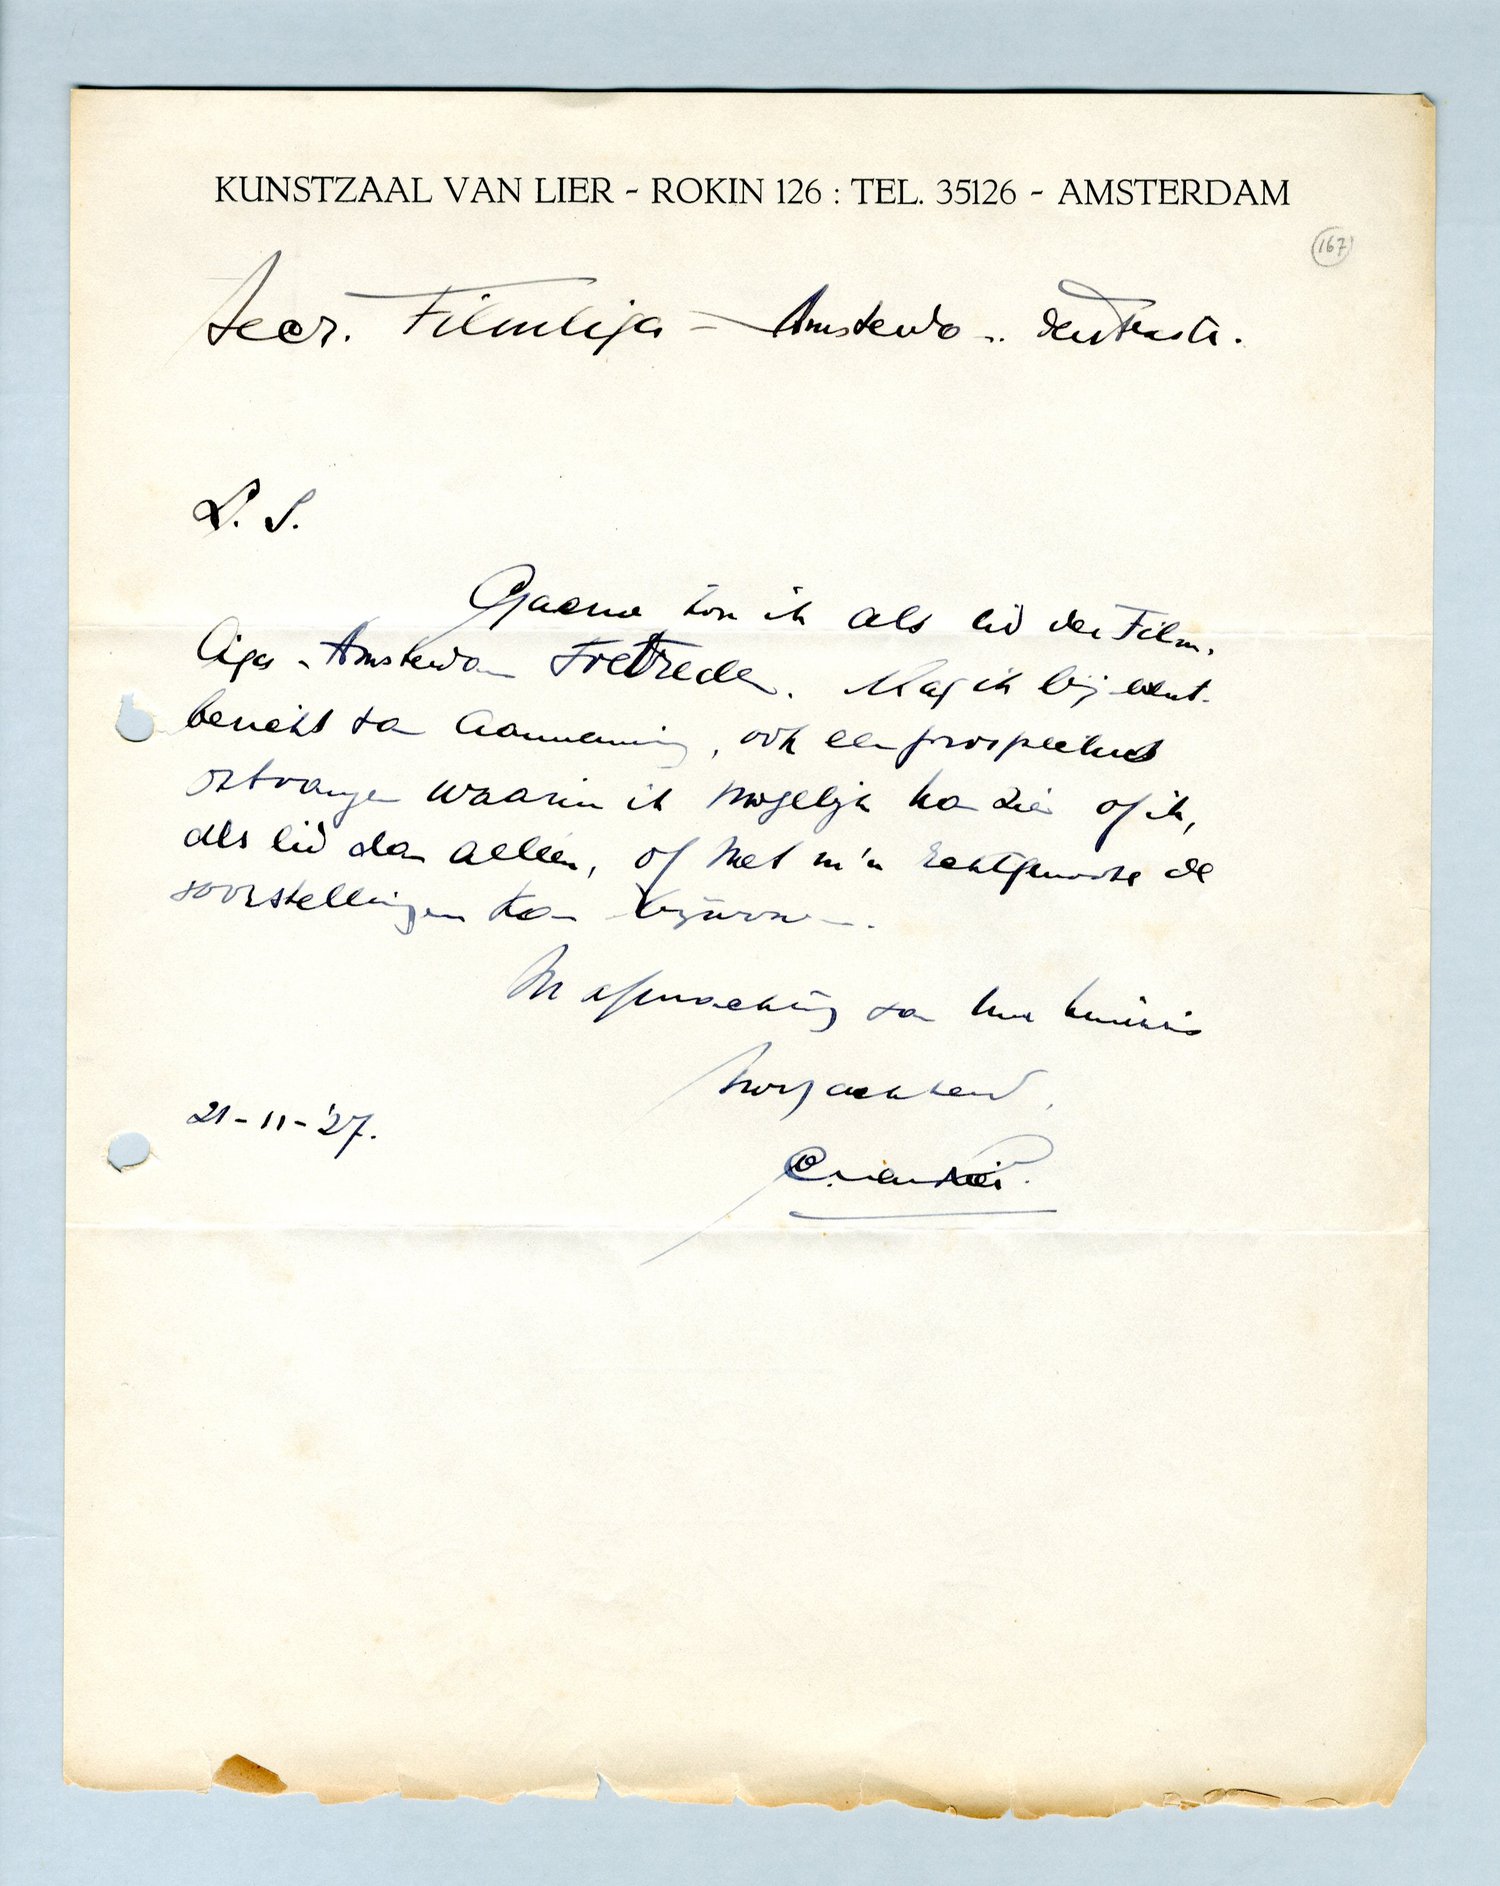 KUNSTZAAL VAN LIER - ROKIN 126 : TEL. 35126 - AMSTERDAM
167
Secr. Filmliga - Amsterdam.
L. S.
Gaerne zou ik als lid der Film-
liga - Amsterdam toetreden. Mag ik bij event.
bericht van aanneming, ook een prospectus
ontvangen waarin ik mogelijk kan zien of ik,
als lid dan alleen, of met m'n echtgenoote de
voorstellingen kan bijwonen.
In afwachting van Uw bericht
hoogachtend,
21-11-'27.
C. van Lier.